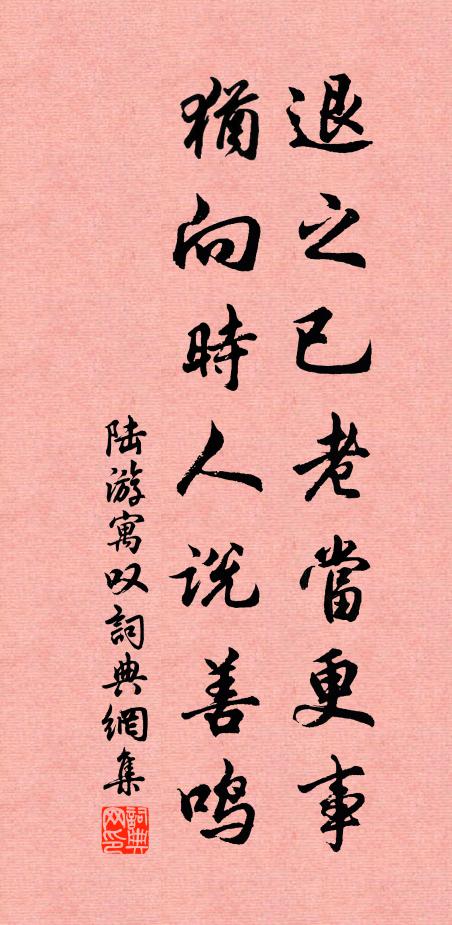 退之已老當更事
猶向時人説善鸣
陆游寓叹詞典網集
詞典
网印